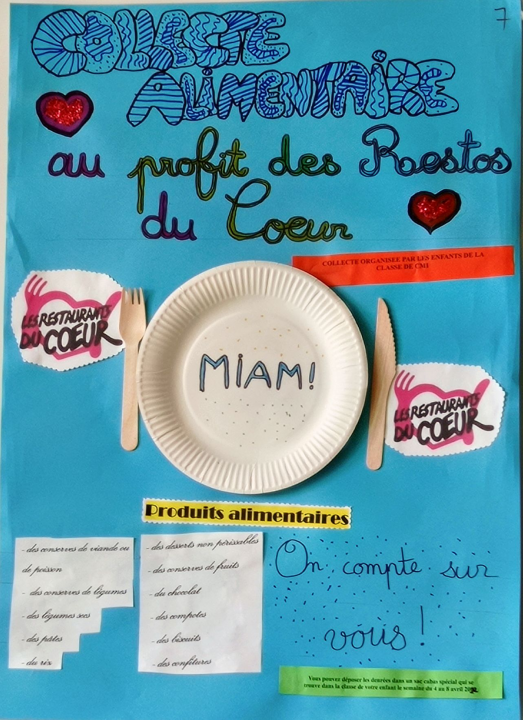 7
COLLECTE
ALIMENTAIRE
au profit des Raestos
du Coeur
COLLECTE ORGANISEE PAR LES ENFANTS DE LA
CLASSE DE CM1
LES RESTAURANTS
DU COEUR
MiAM!
LES RESTAURANTS
DU COEUR
Produits alimentaires
- des conserves de viande ou
de poisson
- des conserves de légumes
- des légumes secs
- des pâtes
- du riz
- des desserts non périssables
- des conserves de fruits
- du chocolat
- des compotes
- des biscuits
- des confitures
On compte sur
vous !
Vous pouvez déposer les denrées dans un sac cabas spécial qui se
trouve dans la classe de votre enfant le semaine du 4 au 8 avril